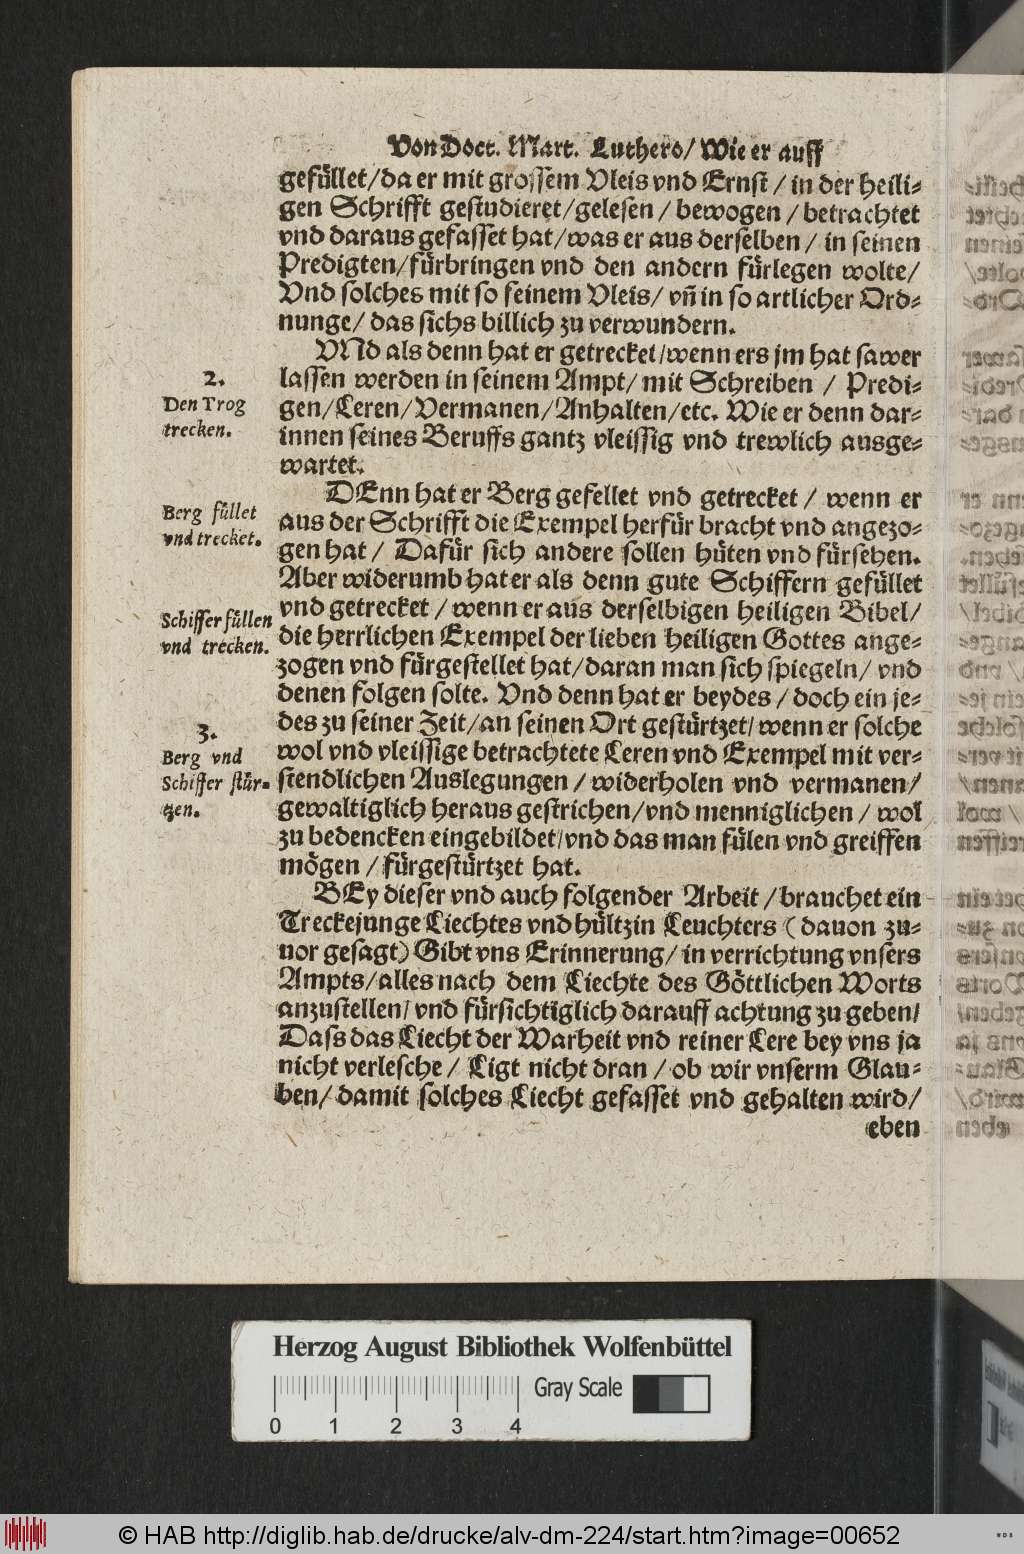 Von Doct. Mart. Luthero/ Wie er auff
gefüllet/da er mit grossem Vleis vnd Ernst / in der heili⸗
gen Schrifft gestudieret/gelesen / bewogen / betrachtet
vnd daraus gefasset hat/was er aus derselben / in seinen
Predigten/fürbringen vnd den andern fürlegen wolte/
Vnd solches mit so feinem Vleis/ vñ in so artlicher Ord⸗
nunge/ das sichs billich zu verwundern.
VNd als denn hat er getrecket/wenn ers jm hat sawer
2.
Den Trog
trecken.
lassen werden in seinem Ampt/ mit Schreiben / Predi⸗
gen/Leren/Vermanen/Anhalten/etc. Wie er denn dar⸗
innen seines Beruffs gantz vleissig vnd trewlich ausge⸗
wartet.
DEnn hat er Berg gefellet vnd getrecket / wenn er
Berg füllet
vnd trecket.
aus der Schrifft die Exempel herfür bracht vnd angezo⸗
gen hat / Dafür sich andere sollen hüten vnd fürsehen.
Aber widerumb hat er als denn gute Schiffern gefüllet
Schiffer füllen
vnd trecken.
vnd getrecket / wenn er aus derselbigen heiligen Bibel/
die herrlichen Exempel der lieben heiligen Gottes ange⸗
zogen vnd fürgestellet hat/daran man sich spiegeln/ vnd
denen folgen solte. Vnd denn hat er beydes / doch ein je⸗
3.
Berg vnd
Schiffer stür⸗
tzen.
des zu seiner Zeit/an seinen Ort gestürtzet/ wenn er solche
wol vnd vleissige betrachtete Leren vnd Exempel mit ver⸗
stendlichen Auslegungen / widerholen vnd vermanen/
gewaltiglich heraus gestrichen/vnd menniglichen / wol
zu bedencken eingebildet/vnd das man fülen vnd greiffen
mögen / fürgestürtzet hat.
BEy dieser vnd auch folgender Arbeit / brauchet ein
Treckejunge Liechtes vnd hültzin Leuchters ( dauon zu⸗
uor gesagt) Gibt vns Erinnerung/ in verrichtung vnsers
Ampts/alles nach dem Liechte des Göttlichen Worts
anzustellen/ vnd fürsichtiglich darauff achtung zu geben/
Dass das Liecht der Warheit vnd reiner Lere bey vns ja
nicht verlesche / Ligt nicht dran / ob wir vnserm Glau⸗
ben/ damit solches Liecht gefasset vnd gehalten wird/
eben
Herzog August Bibliothek Wolfenbüttel
Gray Scale
0 1 2 3 4
© HAB http://diglib.hab.de/drucke/alv-dm-224/start.htm?image=00652